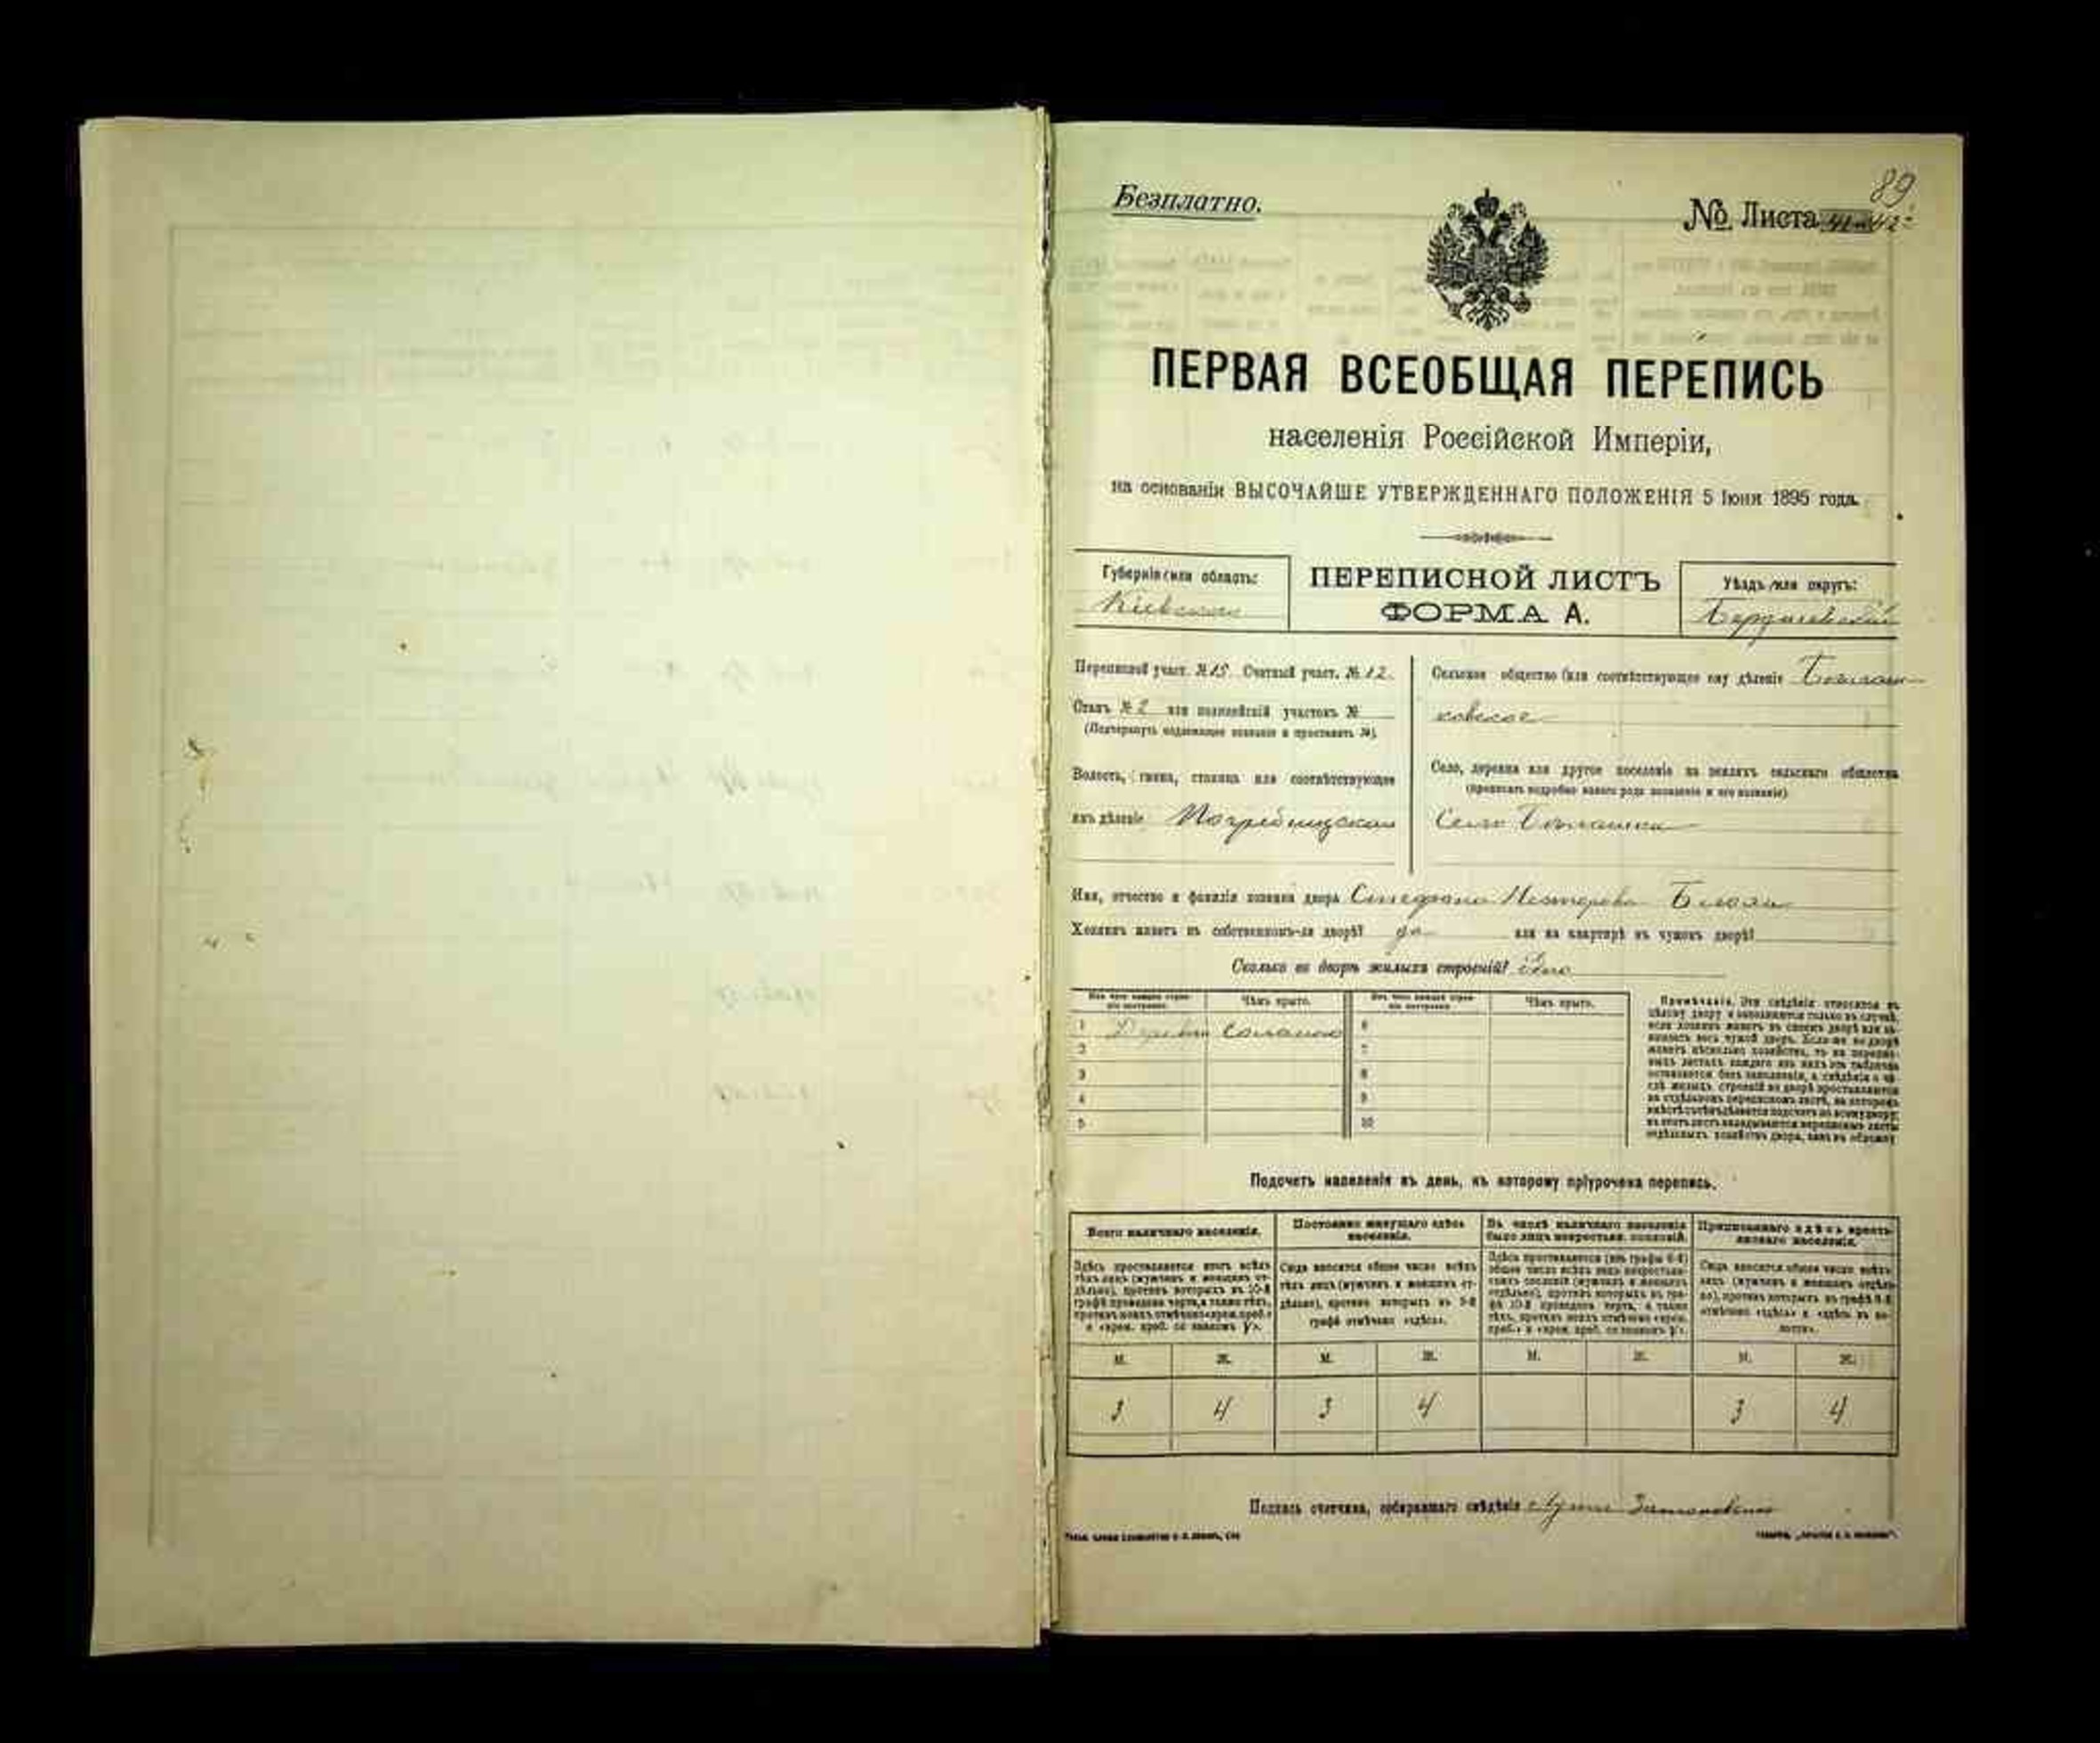 89
Безплатно.
№ Листа 42
ПЕРВАЯ ВСЕОБЩАЯ ПЕРЕПИСЬ
населенія Россійской Имперіи,
на основаніи ВЫСОЧАЙШЕ УТВЕРЖДЕННАГО ПОЛОЖЕНІЯ 5 Іюня 1895 года.
Губернія или область:
Кіевская
ПЕРЕПИСНОЙ ЛИСТЪ
ФОРМА А.
Уѣздъ или округъ:
Бердичевскій
Переписной участ. №15 Счетный участ. №12.
Станъ №2 или полицейскій участокъ №
(Подчеркнуть надлежащее названіе и проставить №).
Волость, гмина, станица или соотвѣтствующее
имъ дѣленіе Погребищская
Сельское общество (или соотвѣтствующее ему дѣленіе
Село, деревня или другое поселеніе на земляхъ сельскаго общества
(прописать подробно какого рода поселеніе и его названіе)
Село
Имя, отчество и фамилія хозяина двора Стефана Нестерова
Хозяинъ живетъ въ собственномъ-ли дворѣ? да или на квартирѣ въ чужомъ дворѣ?
Сколько во дворѣ жилыхъ строеній?
Изъ чего каждое строеніе построено.
Чѣмъ крыто.
Изъ чего каждое строеніе построено.
Чѣмъ крыто.
1 Соломою 6
2 7
3 8
4 9
5 10
Примѣчаніе. Эти свѣдѣнія относятся къ
цѣлому двору и заполняются только въ случаѣ,
если хозяинъ живетъ въ своемъ дворѣ или за-
нимаетъ весь чужой дворъ. Если-же во дворѣ
живетъ нѣсколько хозяйствъ, то на перепис-
ныхъ листахъ каждаго изъ нихъ эта табличка
оставляется безъ заполненія, а свѣдѣнія о чи-
слѣ жилыхъ строеній во дворѣ проставляются
на отдѣльномъ переписномъ листѣ, на которомъ
Подсчетъ населенія въ день, къ которому пріурочена перепись.
Всего наличнаго населенія.
Постоянно живущаго здѣсь населенія.
Въ числѣ наличнаго населенія было лицъ некрестьян. сословій.
Приписаннаго здѣсь крестьянскаго населенія.
Здѣсь проставляется итогъ всѣхъ
тѣхъ лицъ (мужчинъ и женщинъ от-
дѣльно), противъ которыхъ въ 10-й
графѣ проведена черта, а также тѣхъ,
противъ коихъ отмѣчено «врем. преб.»
Сюда вносится общее число всѣхъ
тѣхъ лицъ (мужчинъ и женщинъ от-
дѣльно), противъ которыхъ въ 9-й
графѣ отмѣчено «здѣсь».
Сюда вносится общее число всѣхъ
лицъ (мужчинъ и женщинъ отдѣль-
но), противъ которыхъ въ графѣ 8-й
отмѣчено «здѣсь» и «здѣсь въ во-
лости».
м. ж. м. ж. м. ж. м. ж.
3 4 3 4 3 4
Подпись счетчика, собиравшаго свѣдѣнія